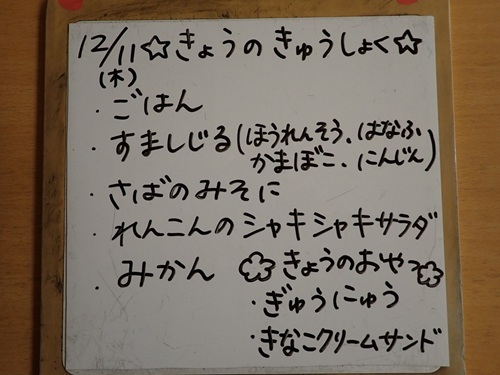 12/11☆きょうのきゅうしょく☆
(木)
・ごはん
・すましじる(ほうれんそう、はなふ
かまぼこ、にんじん)
・さばのみそに
・れんこんのシャキシャキサラダ
・みかん
きょうのおやつ
・ぎゅうにゅう
・きなこクリームサンド